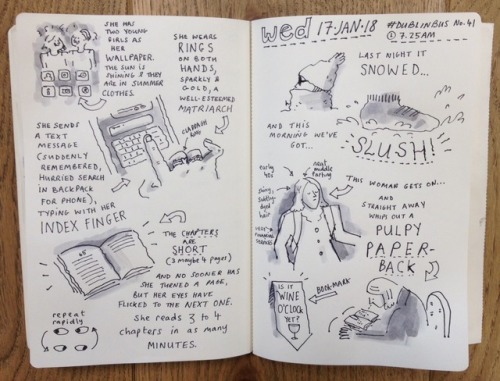 SHE HAS
TWO YOUNG
GIRLS AS
HER
WALLPAPER.
THE SUN IS
SHINING & THEY
ARE IN SUMMER
CLOTHES.
SHE WEARS
RINGS
ON BOTH
HANDS,
SPARKLY &
GOLD, A
WELL-ESTEEMED
MATRIARCH
CLADDAGH
RING
SHE SENDS
A TEXT
MESSAGE
(SUDDENLY
REMEMBERED,
HURRIED SEARCH
IN BACKPACK
FOR PHONE),
TYPING WITH HER
INDEX FINGER
THE CHAPTERS
ARE
SHORT
(3 maybe 4 pages)
AND NO SOONER HAS
SHE TURNED A PAGE,
BUT HER EYES HAVE
FLICKED TO THE NEXT ONE.
She reads 3 to 4
chapters in as many
MINUTES.
repeat
rapidly
wed 17·JAN·18
#DUBLINBUS No.41
7.25AM
LAST NIGHT IT
SNOWED...
AND THIS
MORNING WE'VE
GOT...
SLUSH!
early
40s
neat
middle
parting
hair
THIS WOMAN GETS ON...
AND
STRAIGHT AWAY
WHIPS OUT A
PULPY
PAPER-
BACK
BOOKMARK
IS IT
WINE
O'CLOCK
YET?